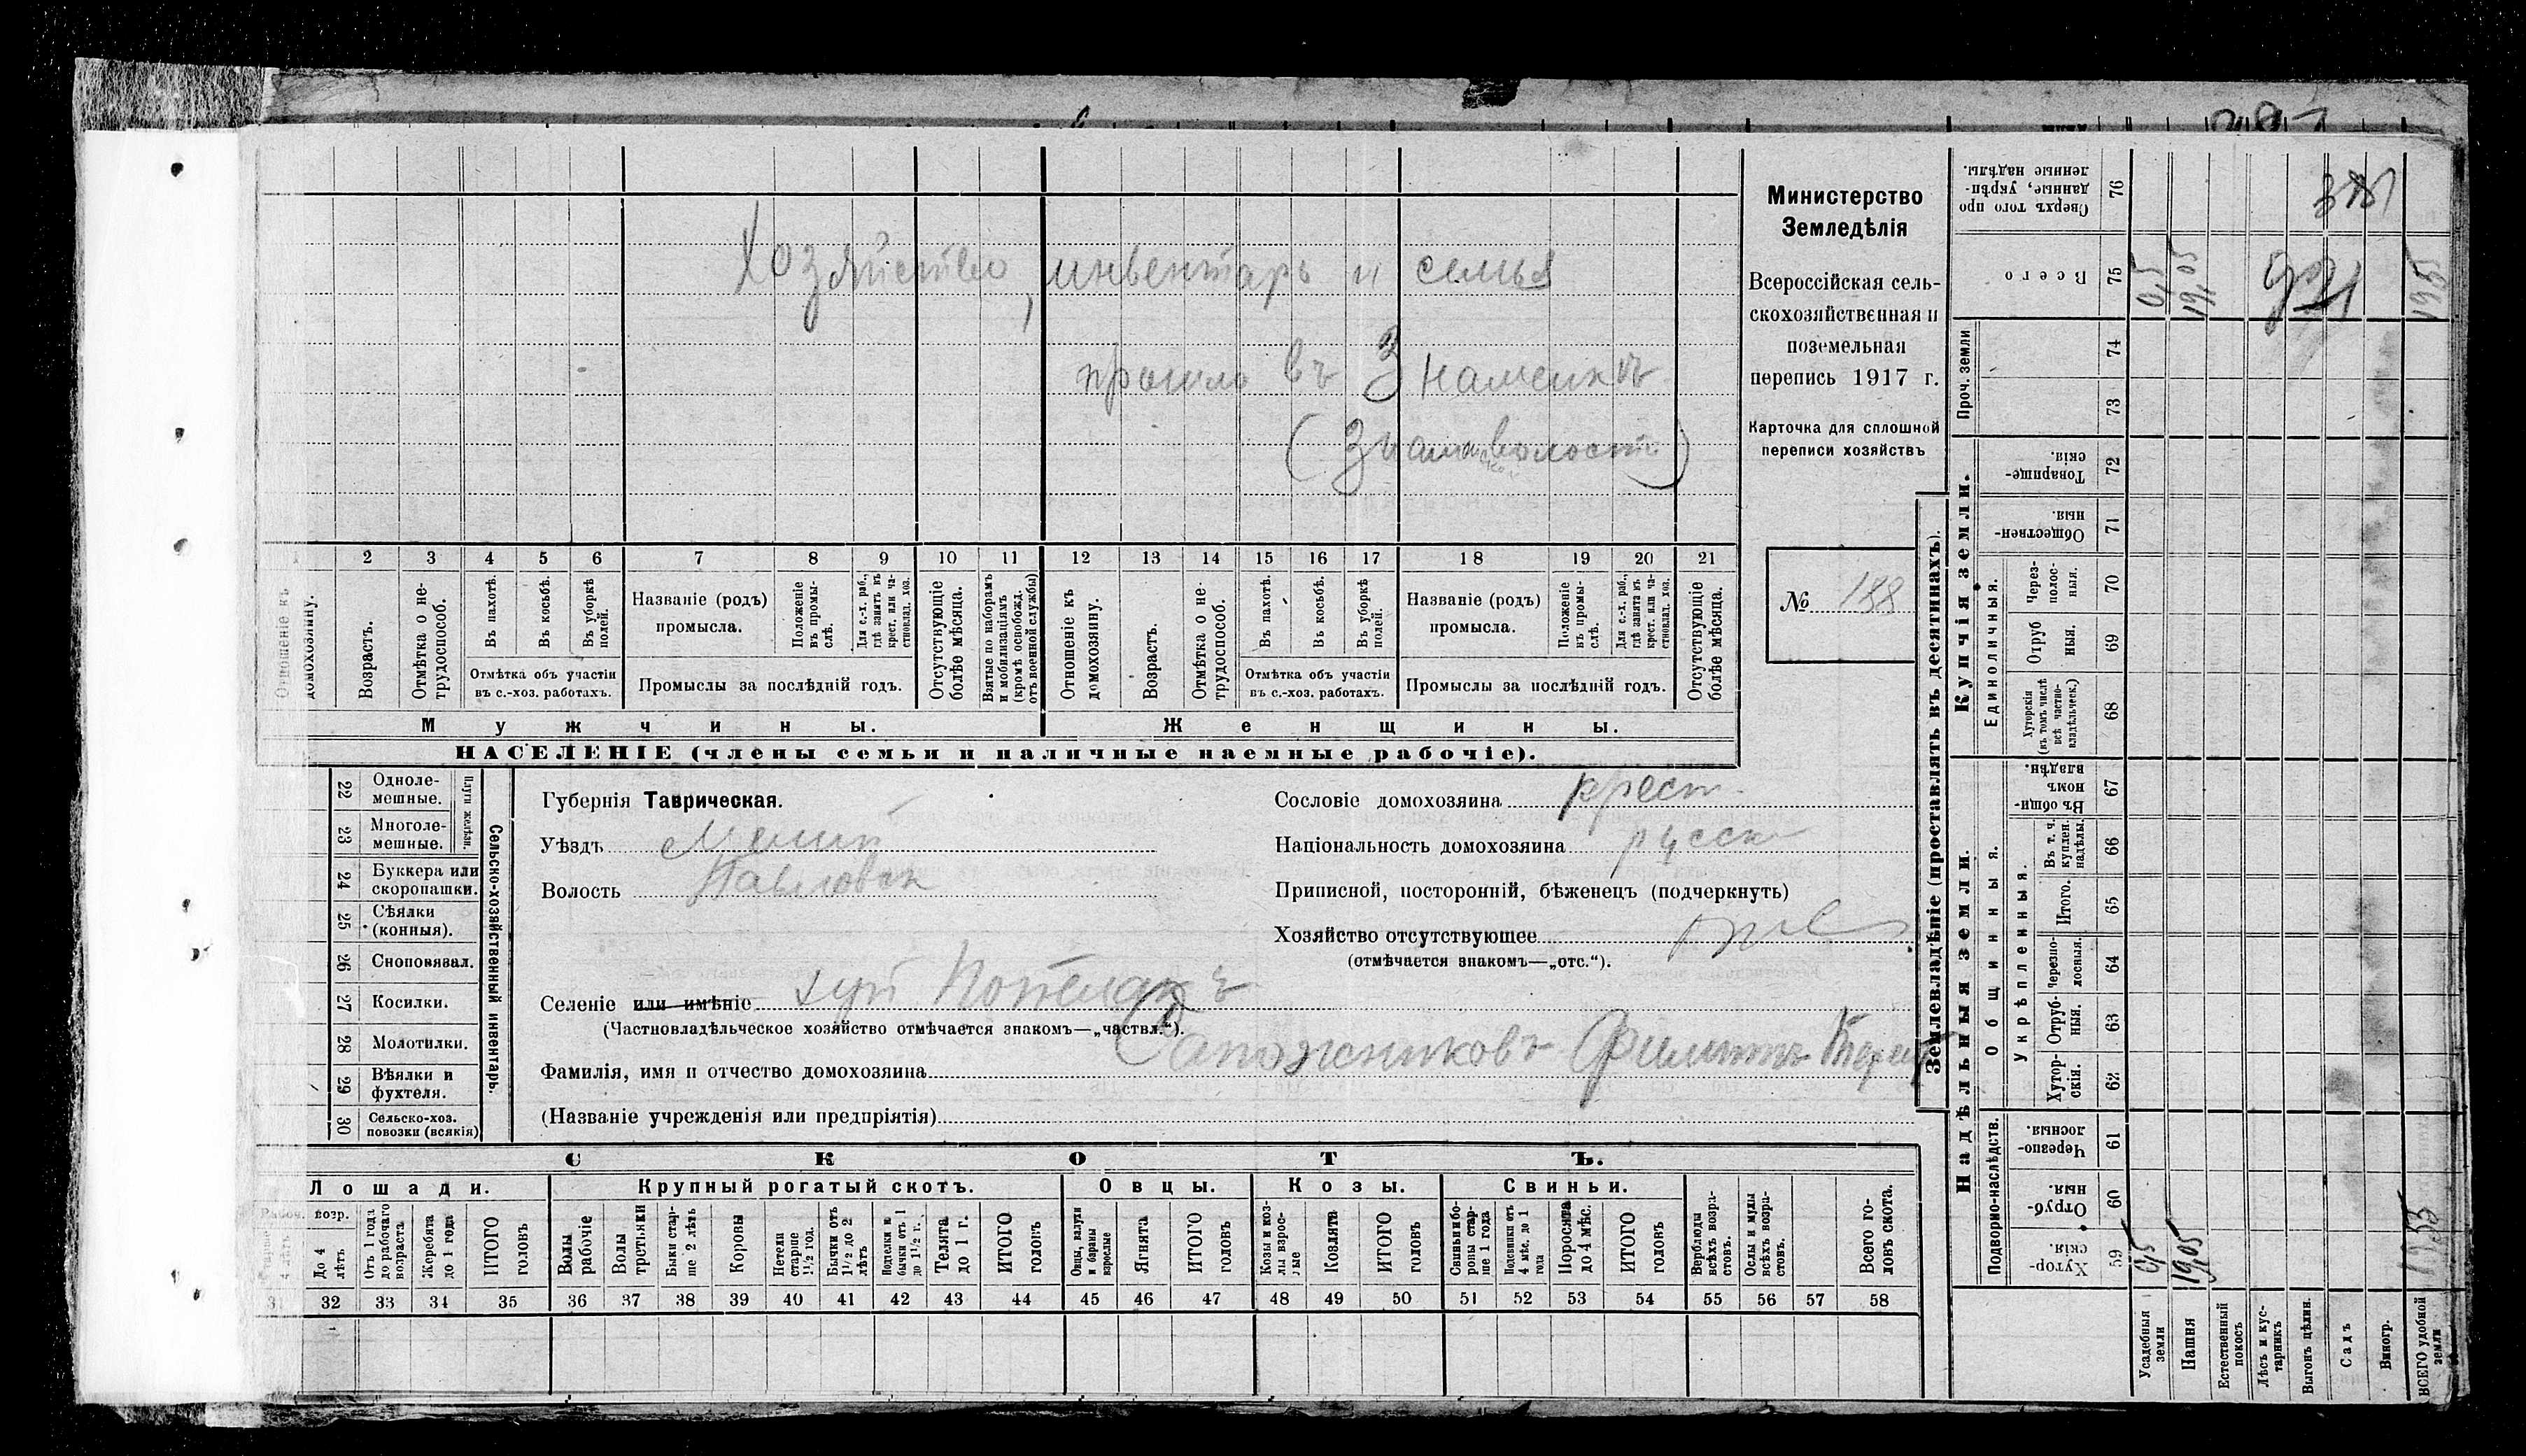 Хозяйство, инвентарь и семья
прошло въ Знаменкѣ
(Знаменской волости)
Министерство
Земледѣлія
Всероссійская сель-
скохозяйственная и
поземельная
перепись 1917 г.
Карточка для сплошной
переписи хозяйствъ
№ 188
2 3 4 5 6 7 8 9 10 11 12 13 14 15 16 17 18 19 20 21
Отношеніе къ домохозяину.
Возрастъ.
Отмѣтка о не-трудоспособ.
Въ пахотѣ.
Въ косьбѣ.
Въ уборкѣ полей.
Отмѣтка объ участіи
въ с.-хоз. работахъ.
Названіе (родъ)
промысла.
Положеніе въ промы-слѣ.
Для с.-х. раб., гдѣ занятъ въ крест. или ча-стновлад. хоз.
Промыслы за послѣдній годъ.
Отсутствующіе болѣе мѣсяца.
Взятые по наборамъ и мобилизаціямъ (кромѣ освобожд. отъ военной службы)
Отношеніе къ домохозяину.
Возрастъ.
Отмѣтка о не-трудоспособ.
Въ пахотѣ.
Въ косьбѣ.
Въ уборкѣ полей.
Отмѣтка объ участіи
въ с.-хоз. работахъ.
Названіе (родъ)
промысла.
Положеніе въ промы-слѣ.
Для с.-х. раб., гдѣ занята въ крест. или ча-стновлад. хоз.
Промыслы за послѣдній годъ.
Отсутствующіе болѣе мѣсяца.
Мужчины.
Женщины.
НАСЕЛЕНІЕ (члены семьи и наличные наемные рабочіе).
22 Одноле-мешные.
23 Многоле-мешные.
Плуги желѣзн.
24 Буккера или скоропашки.
25 Сѣялки (конныя).
26 Сноповязал.
27 Косилки.
28 Молотилки.
29 Вѣялки и фухтеля.
30 Сельско-хоз. повозки (всякія)
Сельско-хозяйственный инвентарь.
Губернія Таврическая.
Уѣздъ Мелит
Волость Павловск
Сословіе домохозяина крест.
Національность домохозяина русск
Приписной, посторонній, бѣженецъ (подчеркнуть)
Хозяйство отсутствующее
(отмѣчается знакомъ—„отс.“).
Селеніе или имѣніе хут
(Частновладѣльческое хозяйство отмѣчается знакомъ—„частвл.“).
Фамилія, имя и отчество домохозяина Сапожниковъ Филиппъ
(Названіе учрежденія или предпріятія)
СКОТЪ.
Лошади.
Крупный рогатый скотъ.
Овцы.
Козы.
Свиньи.
Рабоч. возр.
Старше 4 лѣтъ
До 4 лѣтъ
Отъ 1 года до рабочаго возраста
Жеребята до 1 года
ИТОГО головъ
Волы рабочіе
Волы третьяки
Быки стар-ше 2 лѣтъ
Коровы
Нетели старше 1½ год.
Бычки отъ 1½ до 2 лѣтъ
Подтелки и бычки отъ 1 до 1½ г.
Телята до 1 г.
ИТОГО головъ
Овцы, валухи и бараны взрослые
Ягнята
ИТОГО головъ
Козы и коз-лы взрос-лые
Козлята
ИТОГО головъ
Свиньи и бо-ровы стар-ше 1 года
Подсвинки отъ 4 мѣс. до 1 года
Поросята до 4 мѣс.
ИТОГО головъ
Верблюды всѣхъ возра-стовъ.
Ослы и мулы всѣхъ возра-стовъ.
Всего го-ловъ скота.
31 32 33 34 35 36 37 38 39 40 41 42 43 44 45 46 47 48 49 50 51 52 53 54 55 56 57 58
Землевладѣніе (проставлять въ десятинахъ).
Надѣльныя земли.
Купчія земли.
Проч. земли
Сверхъ того про-данные, укрѣп-ленные надѣлы. 76
Всего 75 0,5 19,05 19,55
74
73
Товарище-скія. 72
Обществен-ныя. 71
Единоличныя.
Через-полос-ныя. 70
Отруб-ныя. 69
Хуторскія (въ томъ числѣ всѣ частно-владѣльческ.) 68
Въ общи-номъ владѣн. 67
Общинныя.
Укрѣпленныя.
Въ т. ч. куплен. надѣлы. 66
Итого. 65
Черезпо-лосныя. 64
Отруб-ныя. 63
Хутор-скія. 62
Подворно-наслѣдств.
Черезпо-лосныя. 61
Отруб-ныя. 60
Хутор-скія. 59 0,5 19,05 19,55
Усадебныя земли
Пашня
Естественный покосъ
Лѣсъ и кус-тарникъ
Выгонъ цѣлин.
Садъ
Виногр.
ВСЕГО удобной земли